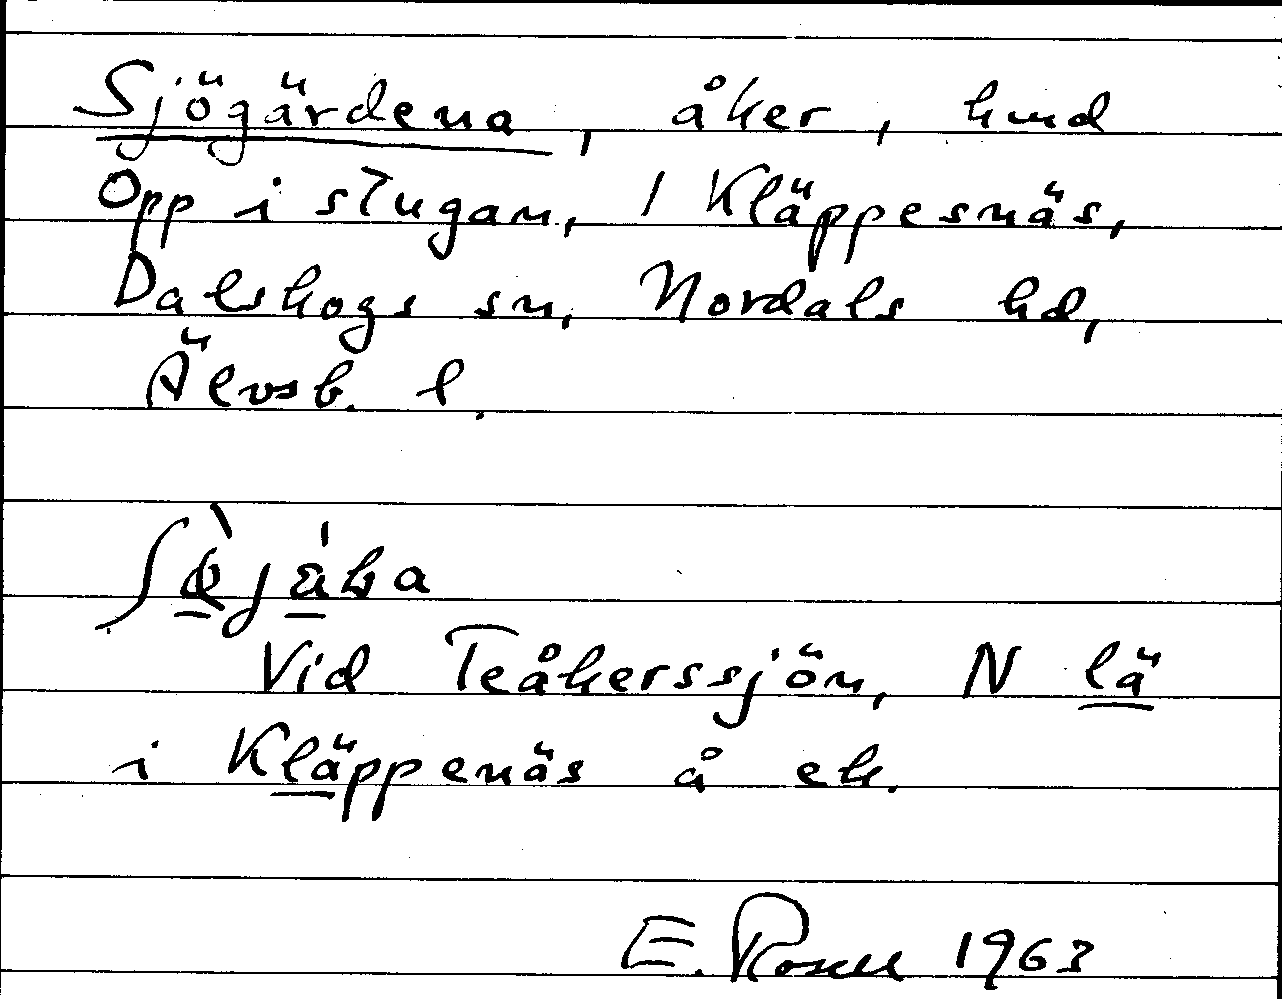 Sjögärdena, åker, hmd
Opp i stugan, 1 Kläppesnäs,
Dalskogs sn, Nordals hd,
Älvsb. l.
Vid Teåkerssjön, N lä
i Kläppenäs å ek.
E. Rosell 1963